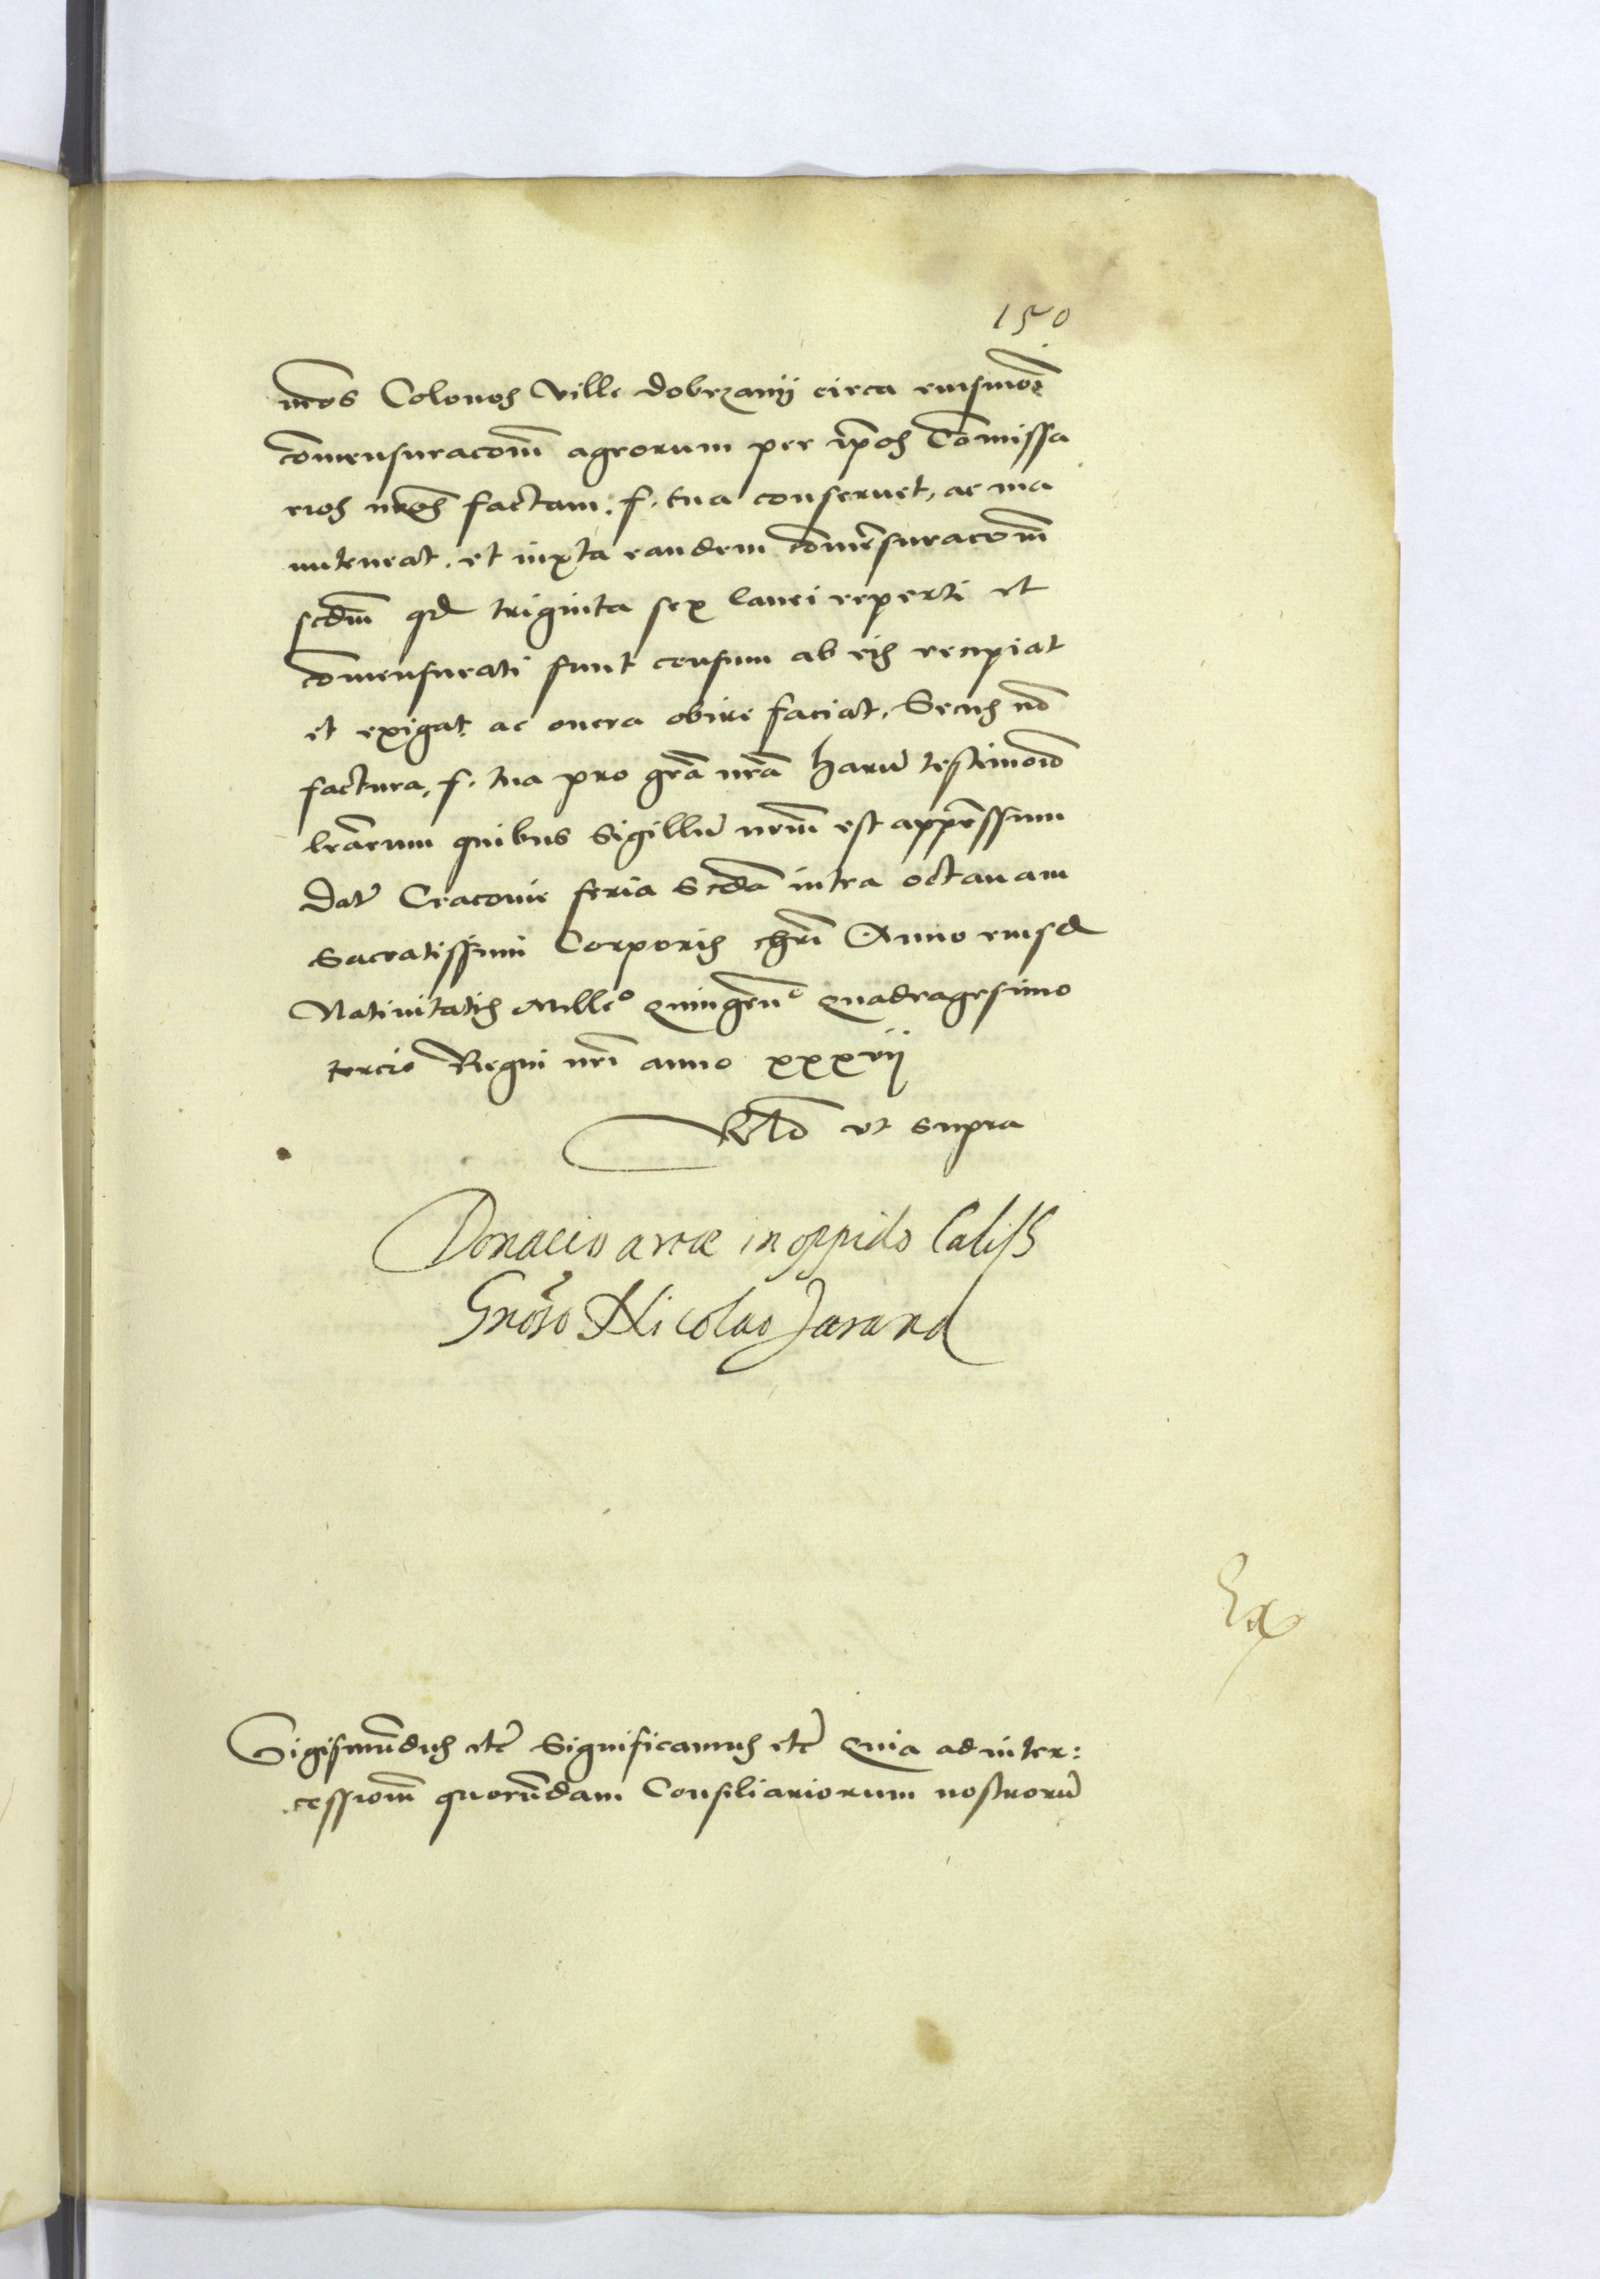 150
nr̄os Colonos Ville dobrzanij circa eiusmōi
Comensuracōm̄ agrorum per ip̄os Comissa
rios nr̄os factam. f. tua conseruet, ac ma
nuteneat. et iuxta eandem Comēsuracōm̄
scdm̄ qd triginta sex lanei reperti et
Comensurati sunt censum ab eis recipiat
et exigat ac onera obire faciat. Secus nō
factura, f. tua pro grā nrā harū testimoiō
lrārum quibus Sigillū nrm̄ est appēssum
Dat̄ Cracovie feria Scdā intra octauam
Sacratissimi Corporis chri Anno eiusd
Natiuitatis Milleo quingēno quadragesimo
tercio Regni nrī anno xxxvij
Rltō vt supra
Donacio areæ in oppido Calissz
Gnōso Nicolao Jarand
Ex
Sigismūdus etc Significamus etc Quia ad inter:
cessiom̄ quorūdam Consiliariorum nostrorū